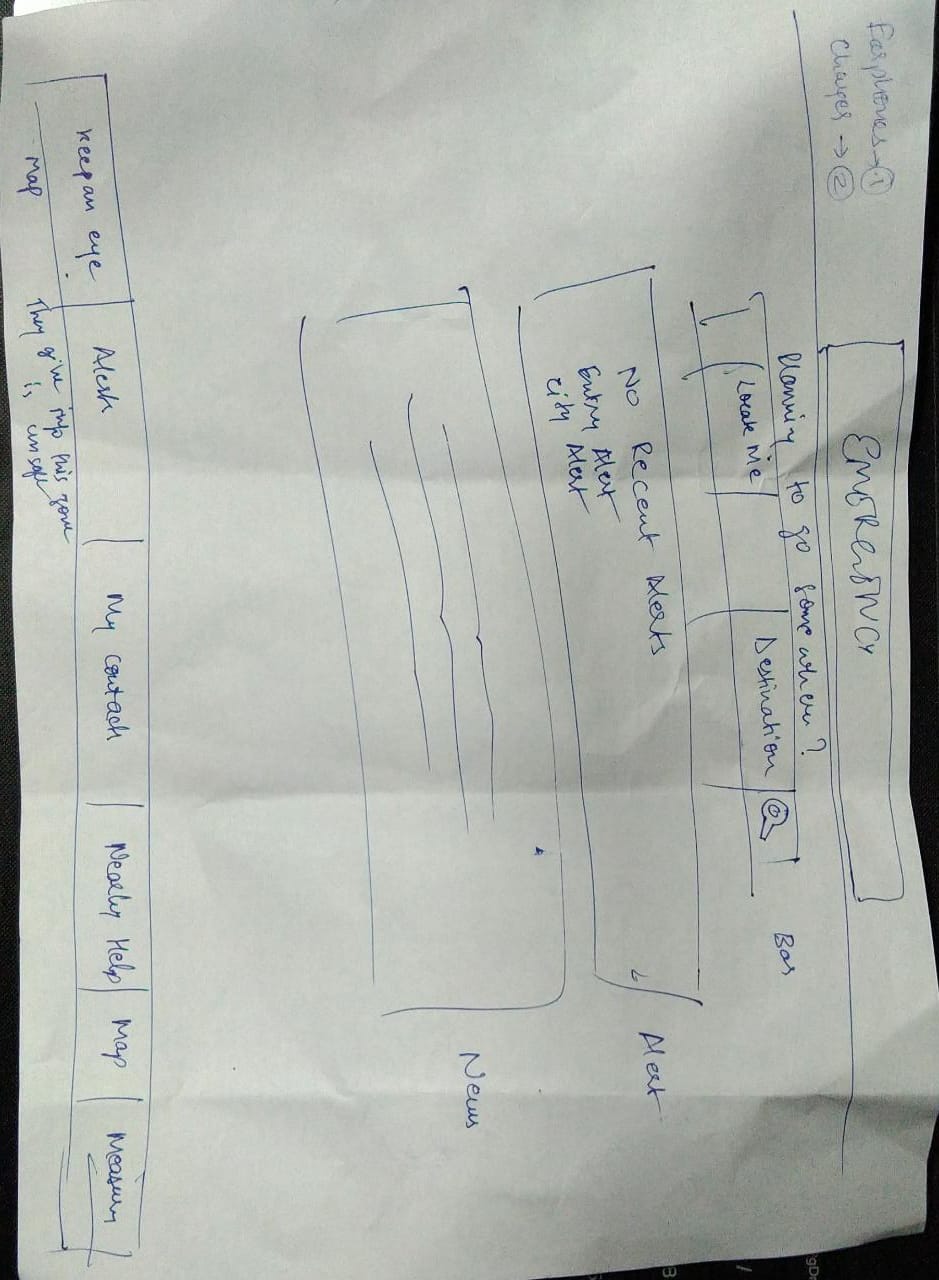 Earphones → ①
Charger → ②
EMERGENCY
Planning to go somewhere?
Locate Me
Destination
Bar
No Recent Alerts
Entry Alert
City Alert
Alert
News
Keep an eye
Alerts
My contacts
Nearby Help
Map
Measury
Map
They give info this zone
is unsafe